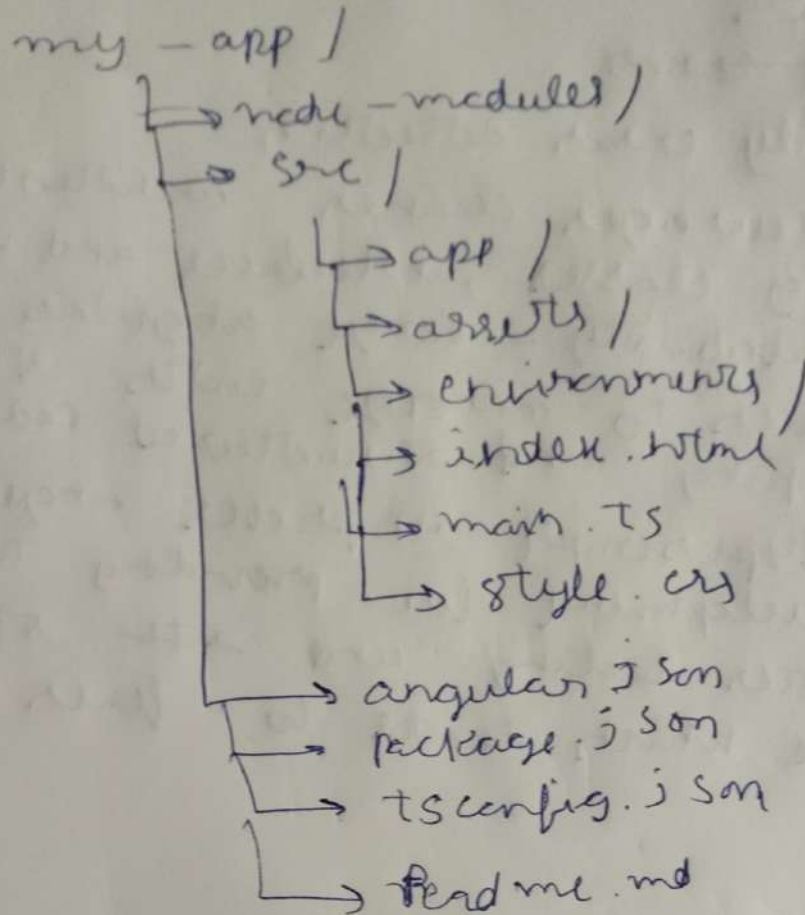 my - app /
node - modules /
src /
app /
assets /
environments /
index.html
main.ts
style.css
angular.json
package.json
tsconfig.json
Readme.md